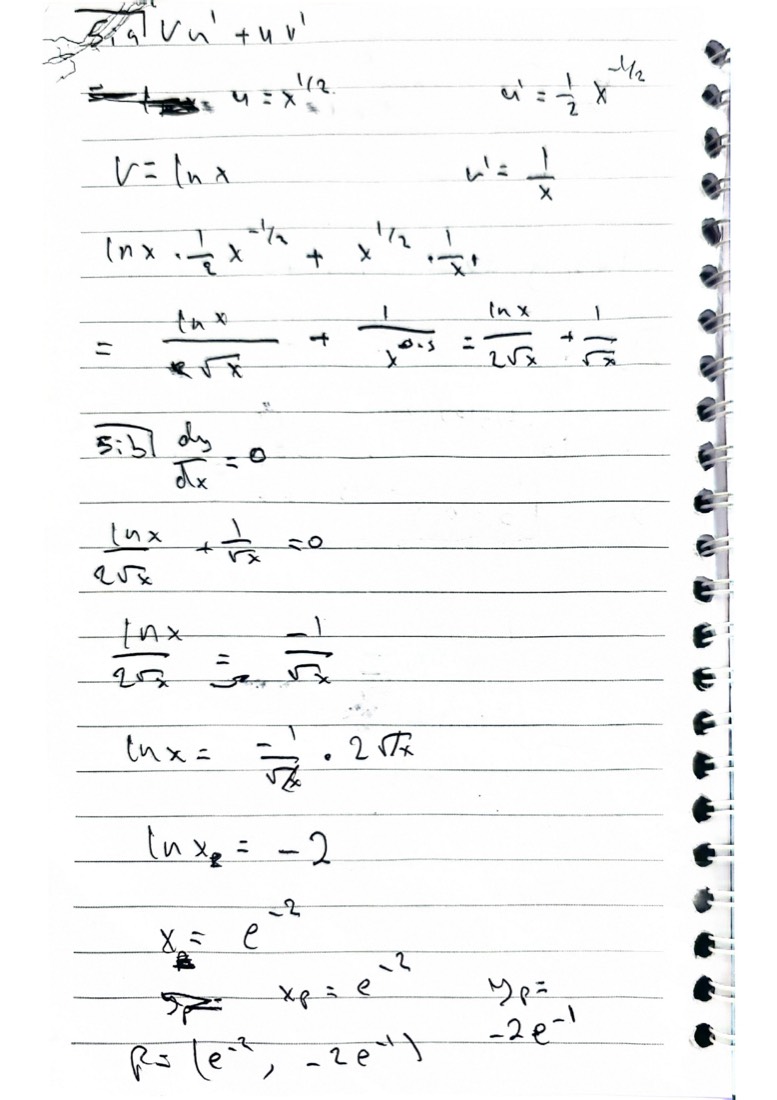 5.a) Vu' + uv'
u = x^{1/2} u' = \frac{1}{2} x^{-1/2}
V = ln x u' = \frac{1}{x}
ln x · \frac{1}{2} x^{-1/2} + x^{1/2} · \frac{1}{x}
= \frac{ln x}{2\sqrt{x}} + \frac{1}{x^{0.5}} = \frac{ln x}{2\sqrt{x}} + \frac{1}{\sqrt{x}}
5.b) \frac{dy}{dx} = 0
\frac{ln x}{2\sqrt{x}} + \frac{1}{\sqrt{x}} = 0
\frac{ln x}{2\sqrt{x}} = \frac{-1}{\sqrt{x}}
ln x = \frac{-1}{\sqrt{x}} · 2\sqrt{x}
ln x = -2
x = e^{-2}
x_p = e^{-2} y_p =
-2e^{-1}
P = (e^{-2}, -2e^{-1})